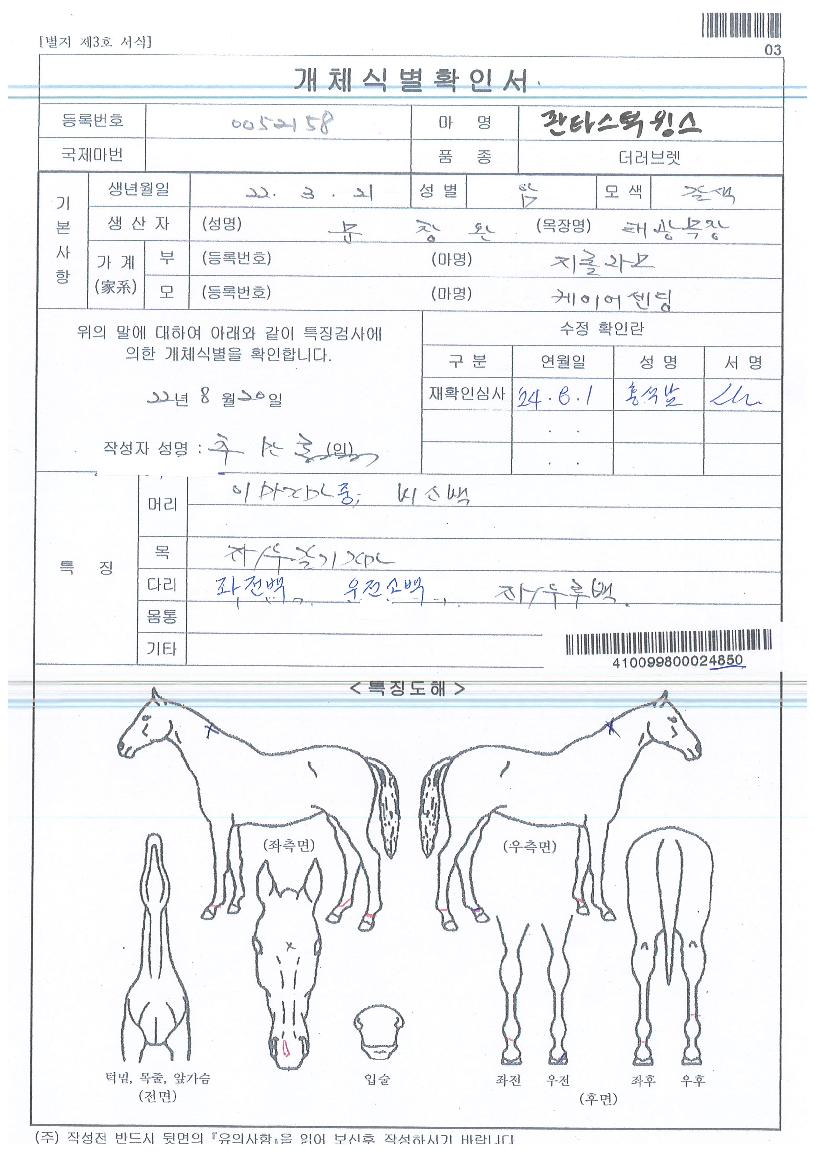 [별지 제3호 서식]
03
개체식별확인서
등록번호 0052158 마 명 판타스틱윙스
국제마번 품 종 더러브렛
기본사항
생년월일 22. 3. 21 성별 암 모색 갈색
생산자 (성명) 문 창 완 (목장명) 태광목장
가계 (家系) 부 (등록번호) (마명) 지롤라모
모 (등록번호) (마명) 케이어센딩
위의 말에 대하여 아래와 같이 특징검사에
의한 개체식별을 확인합니다.
22년 8월 20일
작성자 성명 : (인)
수정 확인란
구 분 연월일 성 명 서 명
재확인심사 24.6.1 홍석발
. .
. .
특 징
머리 이마자마중, 비소백
목 좌/우줄기자마
다리 좌전백 우전소백 좌/우후백
몸통
기타
410099800024850
<특징도해>
(좌측면) (우측면)
턱밑, 목줄, 앞가슴
(전면)
입술
좌전 우전 좌후 우후
(후면)
(주) 작성전 반드시 뒷면의 『유의사항』을 읽어 보신후 작성하시기 바랍니다